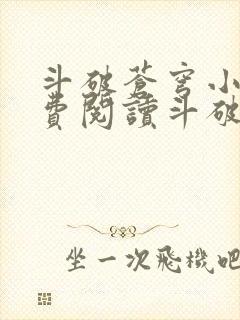 斗破蒼穹小
費閱讀斗破
坐一次飛機吧